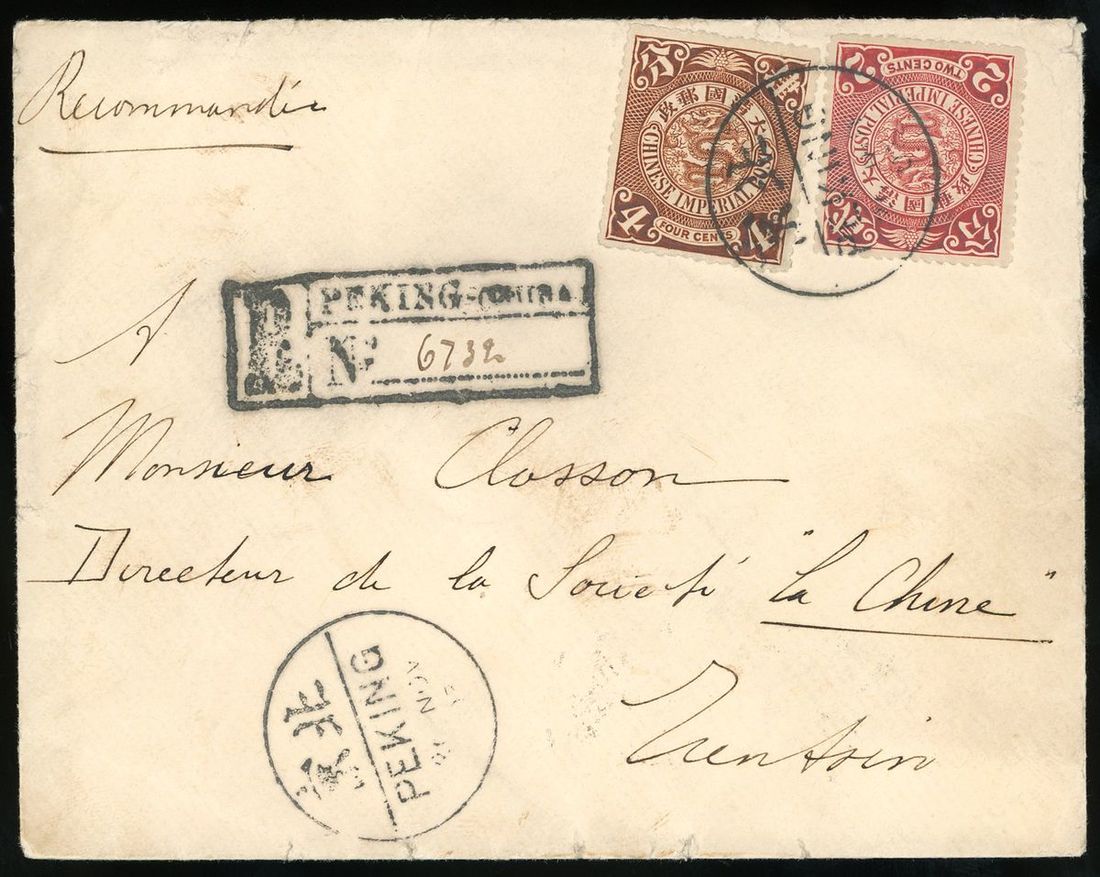 Recommandée
分 四
大清國郵政
CHINESE IMPERIAL POST
4 4
FOUR CENTS
2 2
TWO CENTS
大清國郵政
CHINESE IMPERIAL POST
分
R
PEKING-CHINA
No. 6732
A
Monsieur Closson
Directeur de la Société "La Chine"
Tientsin
北京
PEKING
NOV